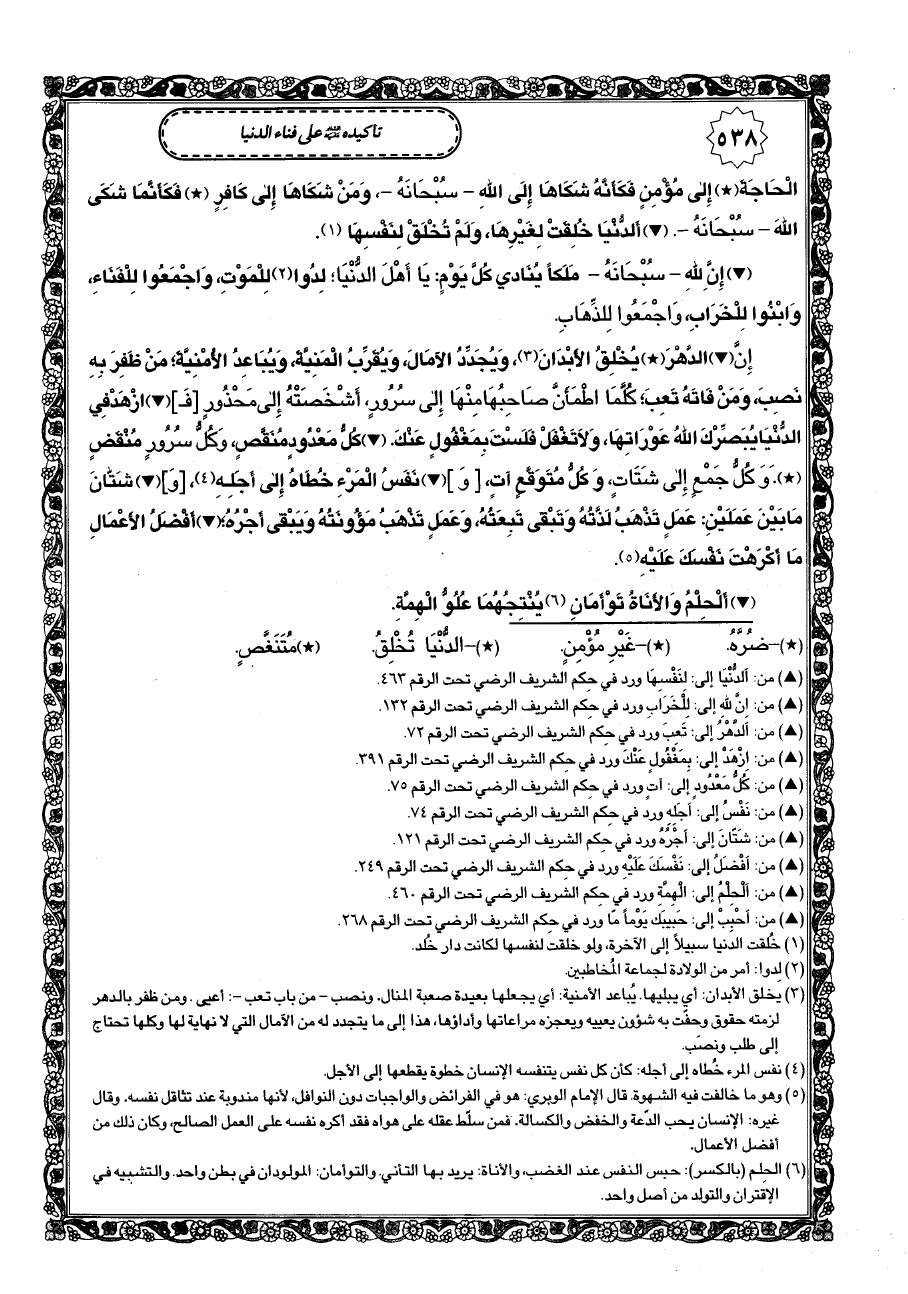 ٥٣٨
تأكيده ﷺ على فناء الدنيا
الْحَاجَةَ(★) إِلى مُؤْمِنٍ فَكَأَنَّهُ شَكَاهَا إِلَى اللهِ - سُبْحَانَهُ -، وَمَنْ شَكَاهَا إِلى كَافِرٍ (★) فَكَأَنَّمَا شَكَى
اللهَ - سُبْحَانَهُ -. (▼) أَلدُّنْيَا خُلِقَتْ لِغَيْرِهَا، وَلَمْ تُخْلَقْ لِنَفْسِهَا (١).
(▼) إِنَّ لِلهِ - سُبْحَانَهُ - مَلَكاً يُنَادي كُلَّ يَوْمٍ: يَا أَهْلَ الدُّنْيَا؛ لِدُوا(٢)لِلْمَوْتِ، وَاجْمَعُوا لِلْفَنَاءِ،
وَابْنُوا لِلْخَرَابِ، وَاجْمَعُوا لِلذِّهَابِ.
إِنَّ(▼) الدَّهْرَ(★)يُخْلِقُ الأَبْدَانَ(٣)، وَيُجَدِّدُ الآمَالَ، وَيُقَرِّبُ الْمَنِيَّةَ، وَيُبَاعِدُ الأُمْنِيَّةَ؛ مَنْ ظَفِرَ بِهِ
نَصِبَ، وَمَنْ فَاتَهُ تَعِبَ؛ كُلَّمَا اطْمَأَنَّ صَاحِبُهَا مِنْهَا إِلى سُرُورٍ، أَشْخَصَتْهُ إِلى مَحْذُورٍ [فَـ](▼)ازْهَدْ فِي
الدُّنْيَا يُبَصِّرْكَ اللهُ عَوْرَاتِهَا، وَلاَ تَغْفَلْ فَلَسْتَ بِمَغْفُولٍ عَنْكَ. (▼) كُلُّ مَعْدُودٍ مُنْقَصٍ، وَكُلُّ سُرُورٍ مُنْقَضٍ
(★). وَ كُلُّ جَمْعٍ إِلى شَتَاتٍ، وَ كُلُّ مُتَوَقَّعٍ آتٍ، [ وَ ](▼)نَفَسُ الْمَرْءِ خُطَاهُ إِلى أَجَلِهِ(٤)، [وَ](▼) شَتَّانَ
مَا بَيْنَ عَمَلَيْنِ: عَمَلٍ تَذْهَبُ لَذَّتُهُ وَتَبْقى تَبِعَتُهُ، وَعَمَلٍ تَذْهَبُ مَؤُونَتُهُ وَيَبْقى أَجْرُهُ؛(▼) أَفْضَلُ الأَعْمَالِ
مَا أَكْرَهْتَ نَفْسَكَ عَلَيْهِ(٥).
(▼) أَلْحِلْمُ وَالأَنَاةُ تَوْأَمَانِ (٦)يُنْتِجُهُمَا عُلُوُّ الْهِمَّةِ.
(★)-ضُرَّهُ. (★)-غَيْرِ مُؤْمِنٍ. (★)-الدُّنْيَا تُخْلِقُ. (★)مُتَنَغَّصٍ.
(▲) من: اَلدُّنْيَا إلى: لِنَفْسِهَا ورد في حكم الشريف الرضي تحت الرقم ٤٦٣.
(▲) من: إنَّ لِلهِ إلى: لِلْخَرَابِ ورد في حكم الشريف الرضي تحت الرقم ١٣٢.
(▲) من: اَلدَّهْرُ إلى: تَعِبَ ورد في حكم الشريف الرضي تحت الرقم ٧٢.
(▲) من: ازْهَدْ إلى: بِمَغْفُولٍ عَنْكَ ورد في حكم الشريف الرضي تحت الرقم ٣٩١.
(▲) من: كُلُّ مَعْدُودٍ إلى: آتٍ ورد في حكم الشريف الرضي تحت الرقم ٧٥.
(▲) من: نَفْسُ إلى: أَجَلِهِ ورد في حكم الشريف الرضي تحت الرقم ٧٤.
(▲) من: شَتَّانَ إلى: أَجْرُهُ ورد في حكم الشريف الرضي تحت الرقم ١٢١.
(▲) من: أَفْضَلُ إلى: نَفْسَكَ عَلَيْهِ ورد في حكم الشريف الرضي تحت الرقم ٢٤٩.
(▲) من: اَلْحِلْمُ إلى: الْهِمَّةِ ورد في حكم الشريف الرضي تحت الرقم ٤٦٠.
(▲) من: أَحْبِبْ إلى: حَبِيبَكَ يَوْماً مَا ورد في حكم الشريف الرضي تحت الرقم ٢٦٨.
(١) خُلقت الدنيا سبيلاً إلى الآخرة، ولو خلقت لنفسها لكانت دار خُلد.
(٢) لِدوا: أمر من الولادة لجماعة المُخاطبين.
(٣) يخلق الأبدان: أي يبليها. يُباعد الأمنية: أي يجعلها بعيدة صعبة المنال. ونصب - من باب تعب -: أعيى. ومن ظفر بالدهر
لزمته حقوق وحفّت به شؤون يعييه ويعجزه مراعاتها وأداؤها، هذا إلى ما يتجدد له من الآمال التي لا نهاية لها وكلها تحتاج
إلى طلب ونصَب.
(٤) نفس المرء خُطاه إلى أجله: كأن كل نفس يتنفسه الإنسان خطوة يقطعها إلى الأجل.
(٥) وهو ما خالفت فيه الشهوة. قال الإمام الوبري: هو في الفرائض والواجبات دون النوافل، لأنها مندوبة عند تثاقل نفسه. وقال
غيره: الإنسان يحب الدّعة والخفض والكسالة. فمن سلّط عقله على هواه فقد أكره نفسه على العمل الصالح، وكان ذلك من
أفضل الأعمال.
(٦) الحِلم (بالكسر): حبس النفس عند الغضب، والأناة: يريد بها التأني. والتوأمان: المولودان في بطن واحد. والتشبيه في
الإقتران والتولد من أصل واحد.